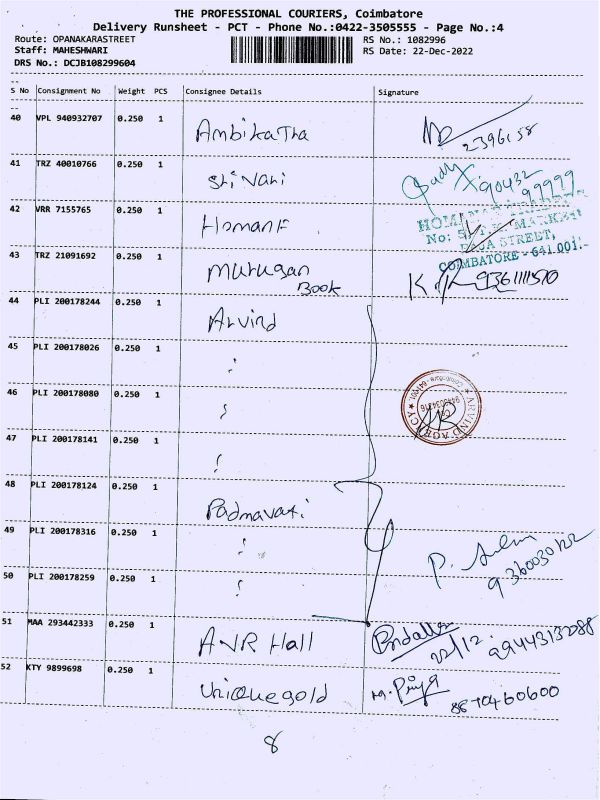 THE PROFESSIONAL COURIERS, Coimbatore
Delivery Runsheet - PCT - Phone No.:0422-3505555 - Page No.:4
Route: OPANAKARASTREET RS No.: 1082996
Staff: MAHESHWARI RS Date: 22-Dec-2022
DRS No.: DCJB108299604
S No Consignment No Weight PCS Consignee Details Signature
40 VPL 940932707 0.250 1 Ambika Tha 2396158
41 TRZ 40010766 0.250 1 Sri Vari 90432 99999
42 VRR 7155765 0.250 1 Homanf
No: MARKET
RAJA STREET,
COIMBATORE - 641 001.
43 TRZ 21091692 0.250 1 Murugan Book 9361111570
44 PLI 200178244 0.250 1 Arvind
45 PLI 200178026 0.250 1 "
46 PLI 200178080 0.250 1 "
ARVIND AGENCY
47 PLI 200178141 0.250 1 "
48 PLI 200178124 0.250 1 Padmavati
49 PLI 200178316 0.250 1 " P.
50 PLI 200178259 0.250 1 " 9360030122
51 MAA 293442333 0.250 1 AVR Hall 22/12
52 KTY 9899698 0.250 1 Unique gold M. Priya 8870460600
8